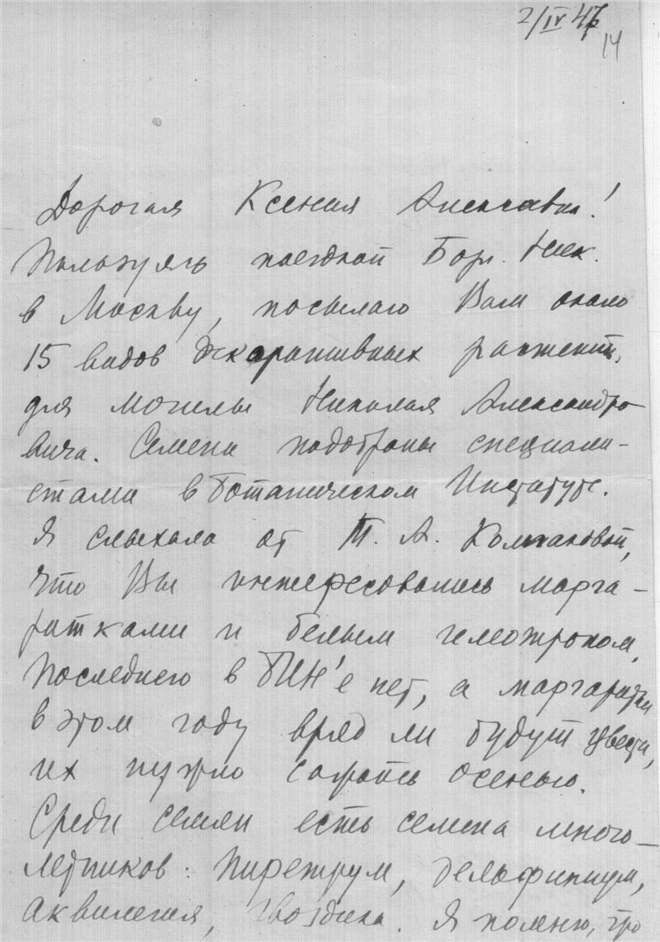 2/IV 47
14
Дорогая Ксения Алексавна!
Пользуясь поездкой Бор. Ник.
в Москву, посылаю Вам около
15 видов декоративных растений,
для могилы Николая Александро-
вича. Семена подобраны специали-
стами в Ботаническом Институте.
Я слыхала от Т. А. Колпаковой,
что Вы интересовались марга-
ритками и белым гелиотропом,
Последнего в БИН'е нет, а маргаритки
в этом году вряд ли будут цвести,
их нужно сажать осенью.
Среди семян есть семена много-
летников: Пиретрум, дельфиниум,
аквилегия, гвоздика. Я помню, что